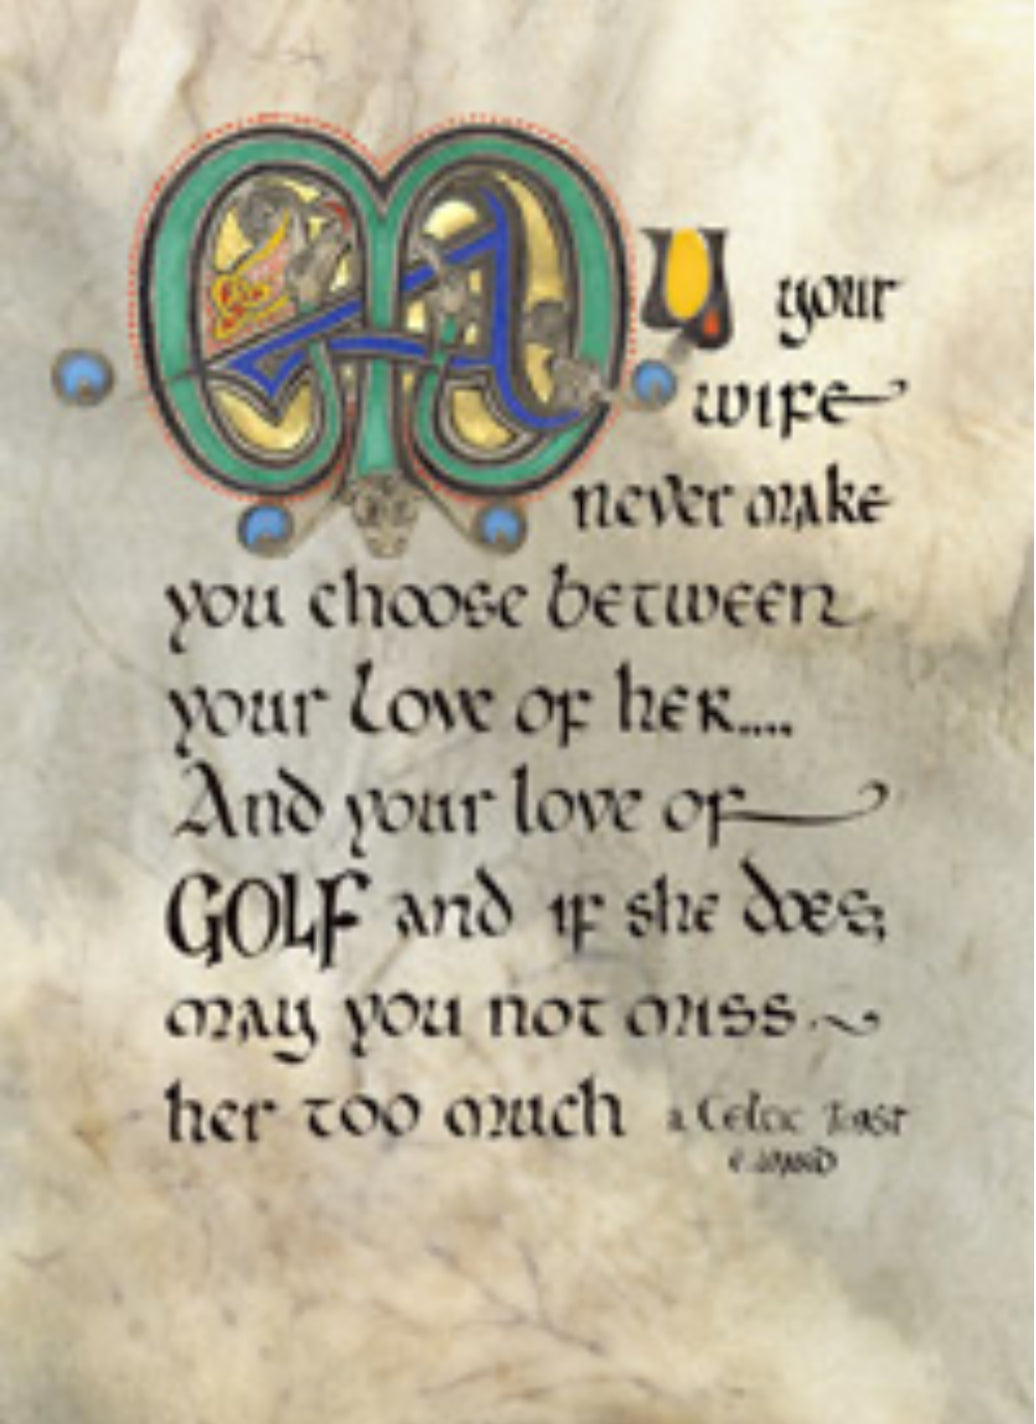 May your
wife
never make
you choose between
your love of her....
And your love of
GOLF and if she does,
may you not miss
her too much
a Celtic Toast